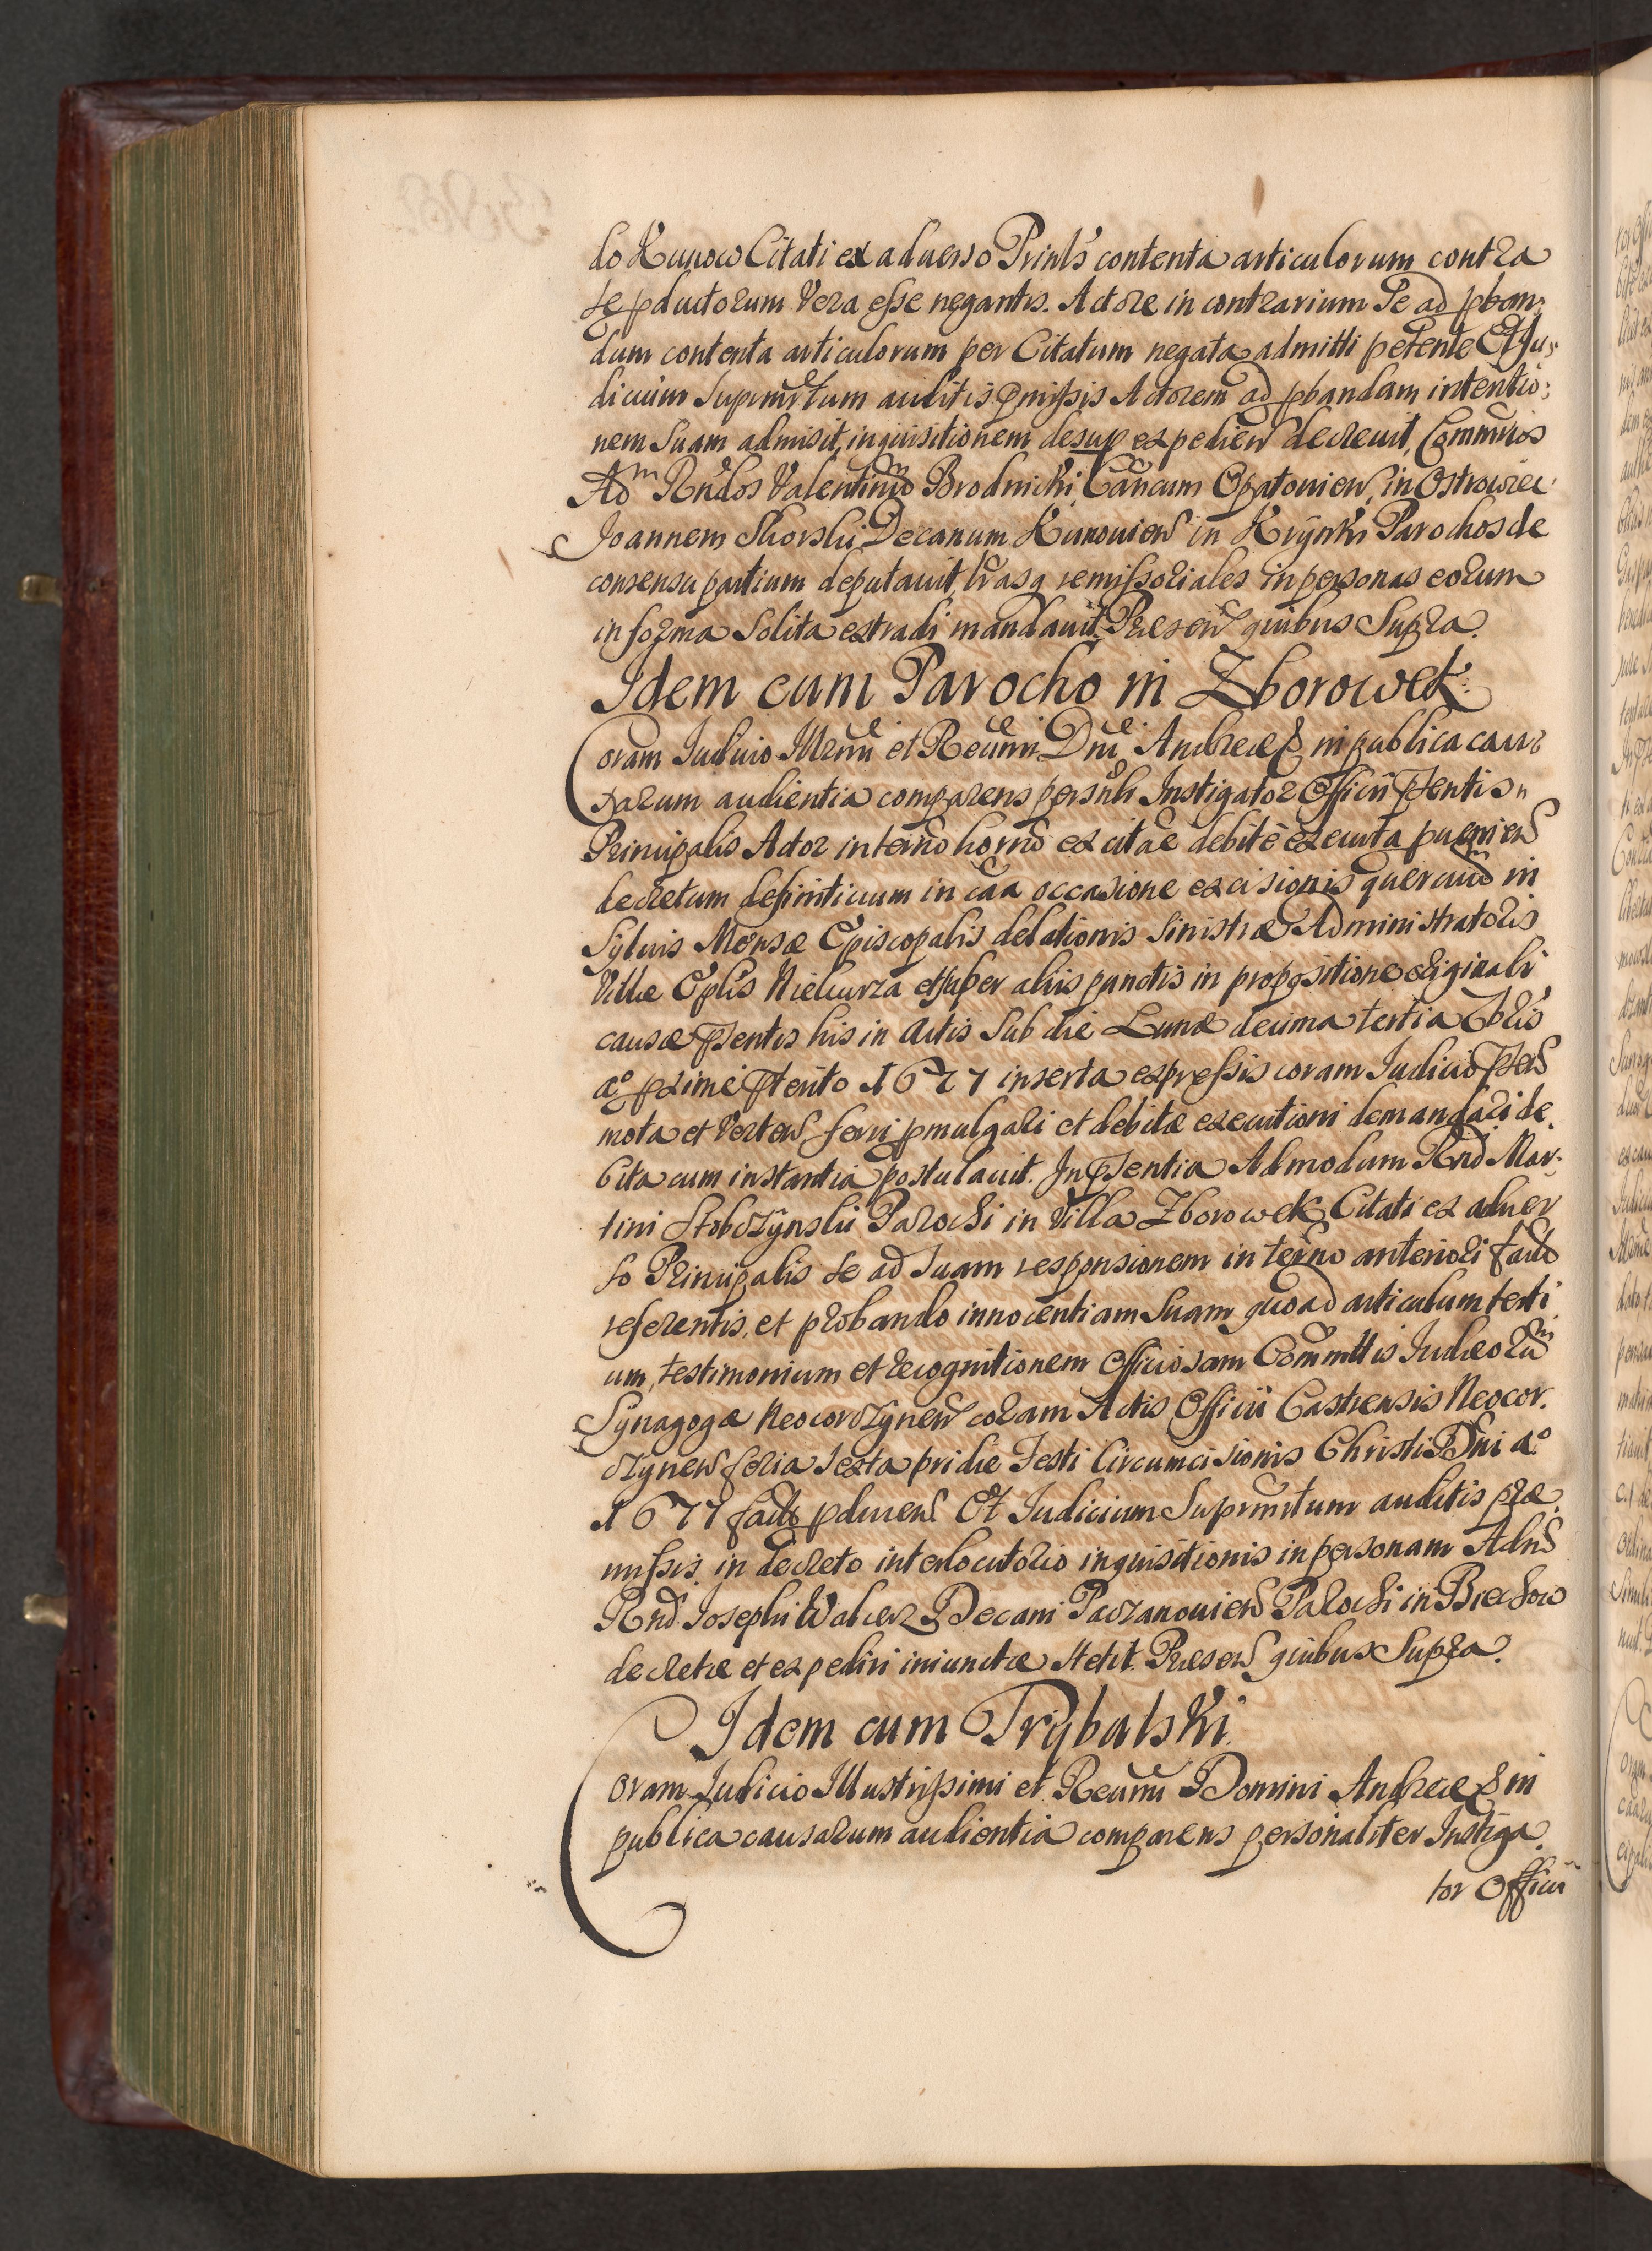 do Kunow Citati ex aduerso Prinls contenta articulorum contra
se pductorum Vera esse negantis. Actore in contrarium Se ad pban:
dum contenta articulorum per Citatum negata admitti petente Et Ju:
dicium Suprmtum auditis pmissis Actorem ad pbandam intentio:
nem Suam admisit, inquisitionem desup expedien decreuit, Commrios
Adm Rndos Valentinum Brodnicki Cancum Opatouien, in Ostrowiec
Joannem Skorski Decanum Kunouien in Krynki Parochos de
consensu partium deputauit, lrasq remissoriales in personas eorum
in forma Solita extradi mandauit. Praesen quibus Supra.
Idem cum Parocho in Zborowek.
Coram Judicio Illrmi et Reumi Dni Andreae & in publica cau:
sarum audientia comparens personlr Instigator Officii pntis
Principalis Actor in termo horno ex citae debite executa puenien
decretum definitiuum in caa occasione excisionis quercuum in
Syluis Mensae Episcopalis delationis Sinistrae Administratoris
Villae Eplis Niekurza et super aliis punctis in propositione originali
causae pntis his in Actis Sub die Lunae decima tertia Xbris
ao pxime pterito 1677 inserta expressis coram Judicio psen
mota et Verten ferri pmulgari et debitae executioni demandari de
bita cum instantia postulauit. In psentia Admodum Rnd Mar:
tini Stobczynski Parochi in Villa Zborowek Citati ex aduer
so Principalis se ad Suam responsionem in termo anteriori factam
referentis, et probando innocentiam Suam quoad articulum terti
um, testimonium et recognitionem officiosam Committis Judaeorum
Synagogae Neocorczynen coram Actis Officii Castrensis Neocor.
czynen feria sexta pridie Festi Circumcisionis Christi Dni ao
1677 factam pducen Et Judicium Suprmtum auditis prae
missis in decreto interlocutorio inquisitionis in personam Adm
Rnd Josephi Walcerz Decani Paczanouien Parochi in Biechow
decretae et expediri iniunctae stetit. Praesen quibus Supra.
Idem cum Trybulski.
Coram Judicio Illustrissimi et Reumi Domini Andreae & in
publica causarum audientia comparens personaliter Instiga
tor Officii